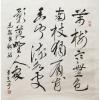 萬樹寒無色
南枝獨有花
香聞流水處
影落野人家